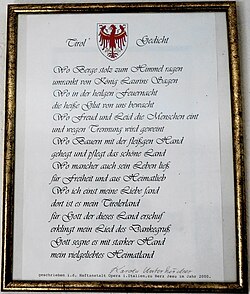 Tirol' Gedicht
Wo Berge stolz zum Himmel ragen
umrankt von König Laurins Sagen
Wo in der heilgen Feuernacht
die heiße Glut von uns bewacht
Wo Freud und Leid die Menschen eint
und wegen Trennung wird geweint
Wo Bauern mit der fleißgen Hand
gehegt und pflegt das schöne Land
Wo mancher auch sein Leben ließ
für Freiheit und aus Heimatlieb
Wo ich einst meine Liebe fand
dort ist es mein Tirolerland
für Gott der dieses Land erschuf
erklingt mein Lied des Dankegruß
Gott segne es mit starker Hand
mein vielgeliebtes Heimatland
geschrieben i.d. Haftanstalt Opera i. Italien.zu Herz Jesu im Jahr 2000.